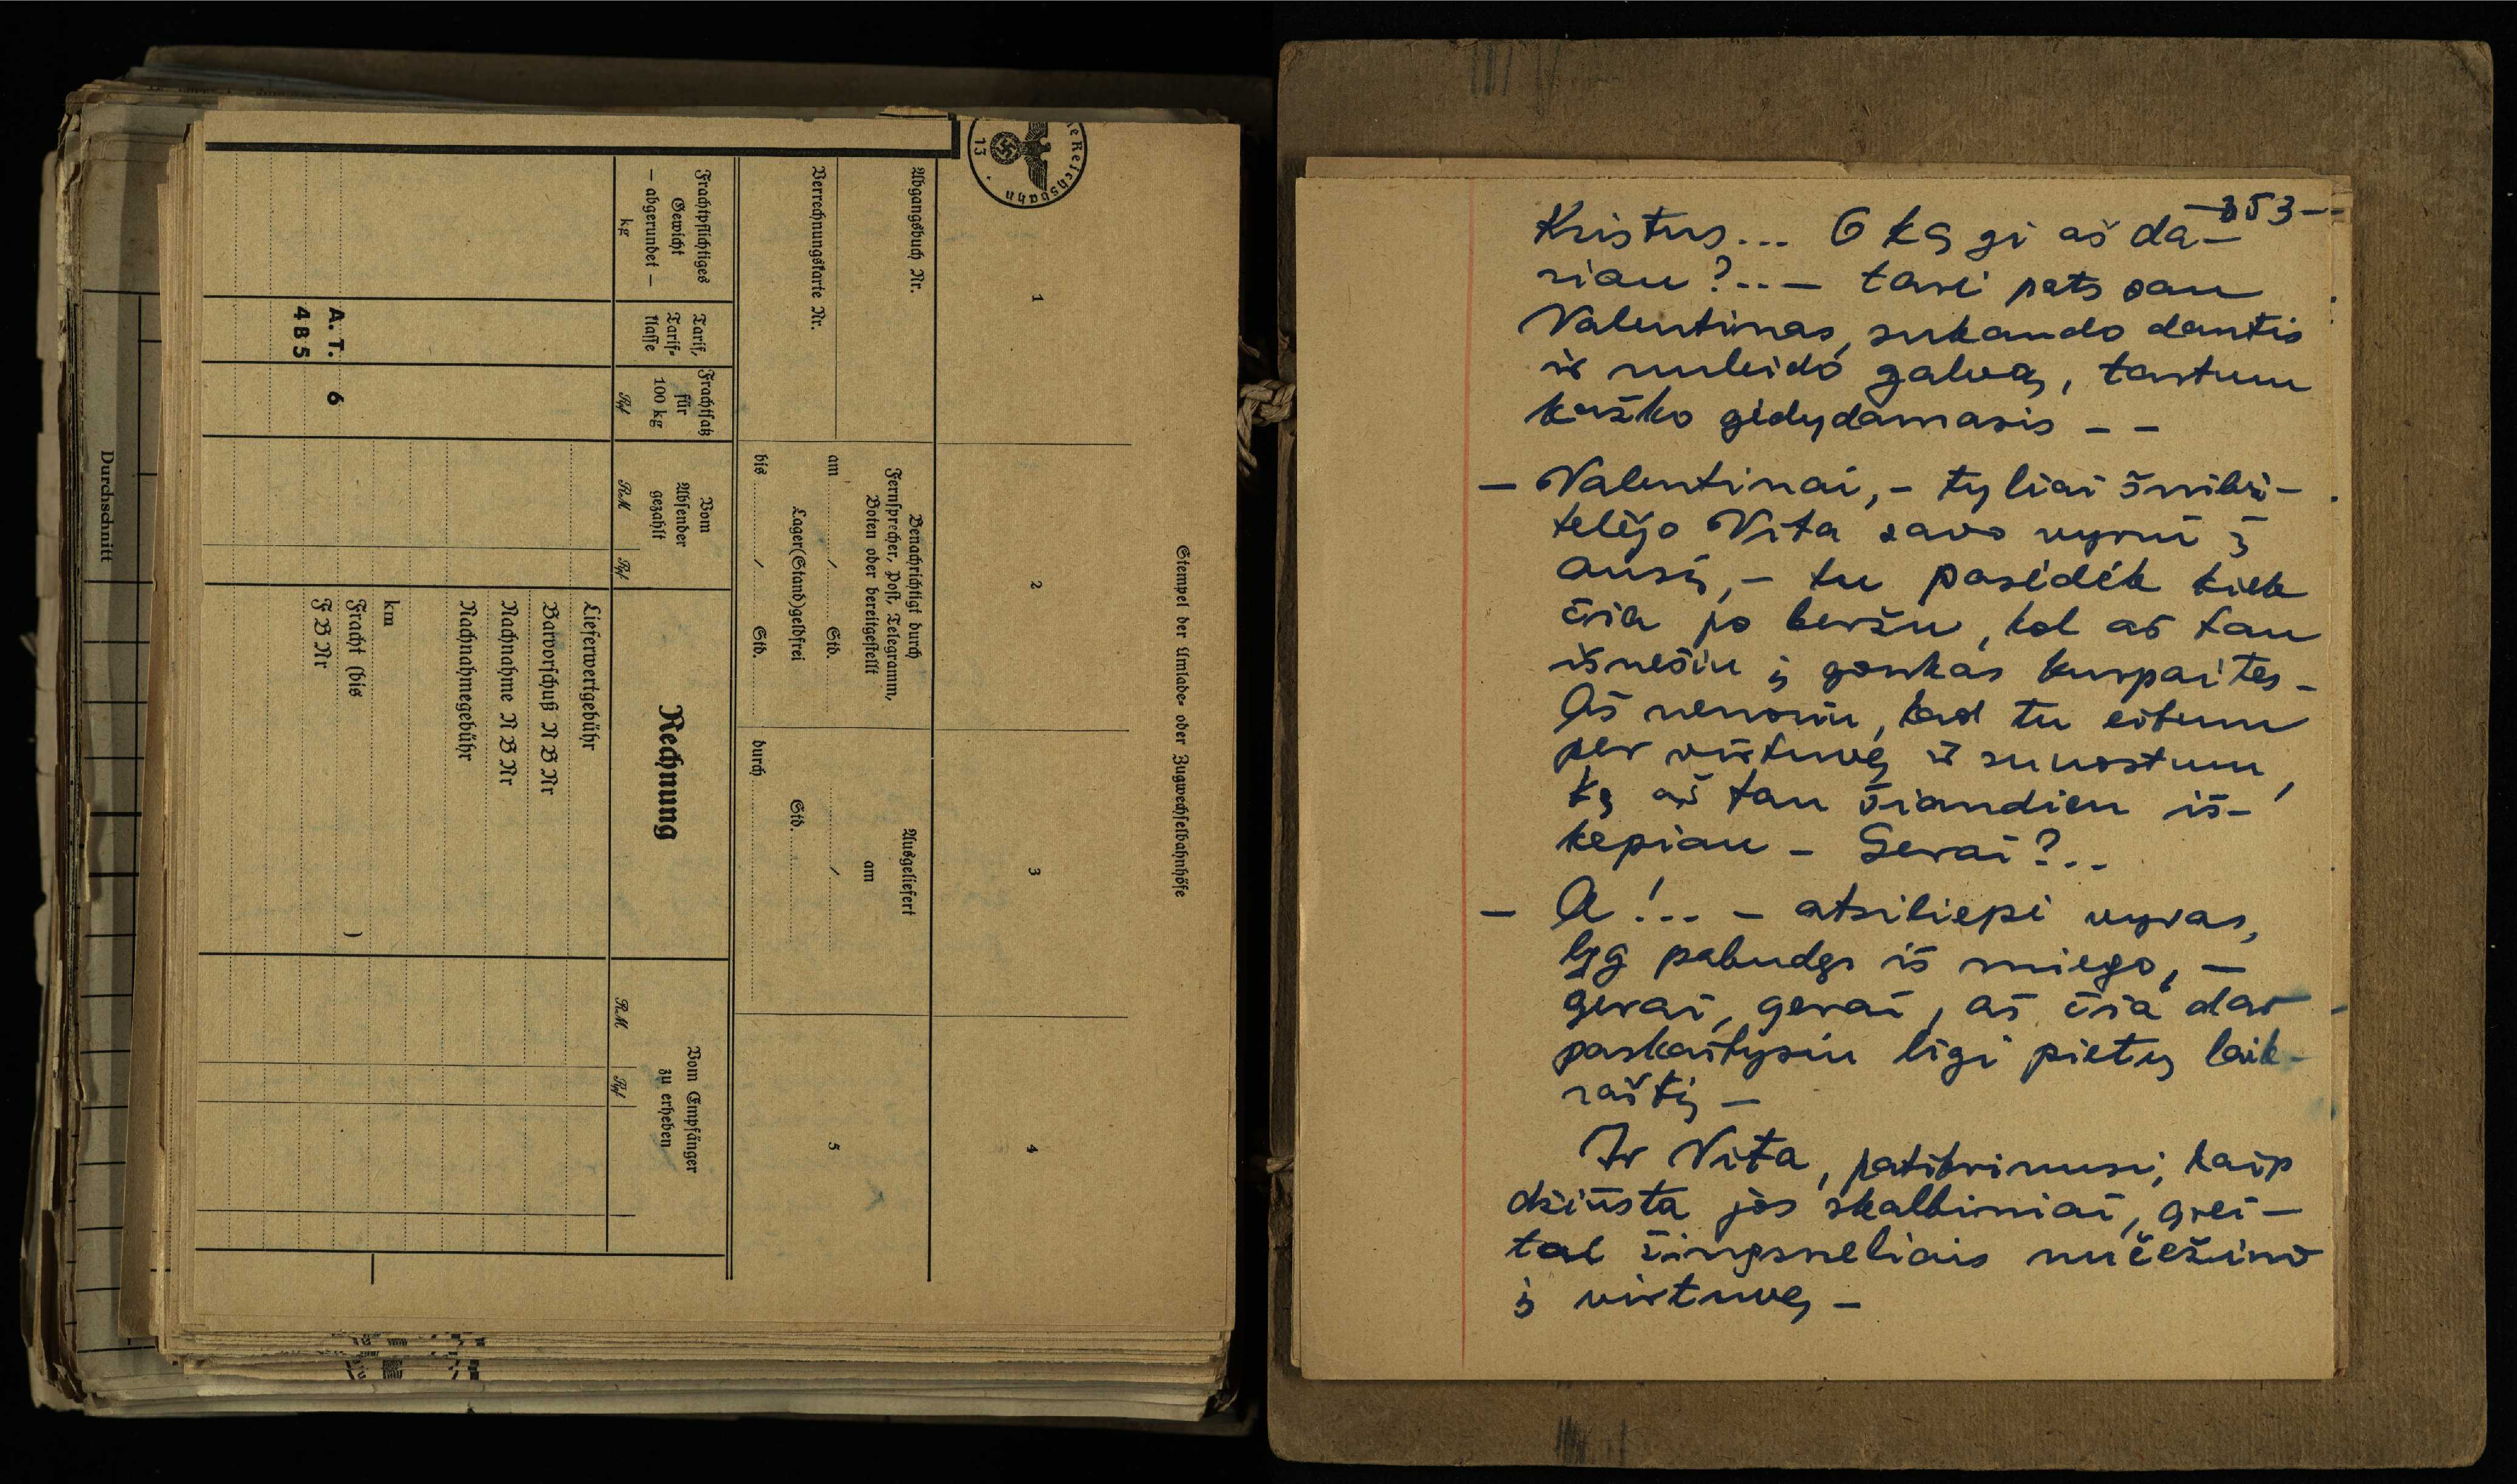 e Reichsbahn
13
Stempel der Umlade- oder Zugwechselbahnhöfe
1
2
3
4
Abgangsbuch Nr.
Verrechnungskarte Nr.
Benachrichtigt durch
Fernsprecher, Post, Telegramm,
Boten oder bereitgestellt
am / Std.
Lager(Stand)geldfrei
bis / Std.
Ausgeliefert
am
/
Std.
durch
5
Frachtpflichtiges
Gewicht
— abgerundet —
kg
Tarif,
Tarif-
klasse
Frachtsatz
für
100 kg
Rpf
Vom
Absender
gezahlt
RM Rpf
Rechnung
Vom Empfänger
zu erheben
RM Rpf
Lieferwertgebühr
Barvorschuß N B Nr
Nachnahme N B Nr
Nachnahmegebühr
km
Fracht (bis )
F B Nr
A. T. 6
4 B 5
Durchschnitt
—353—
Kristus... O ką gi aš da-
riau?.. — tarė pats sau
Valentinas, sukando dantis
ir nuleido galvą, tartum
kažko gėdydamasis - -
— Valentinai, - tyliai šnibž-
telėjo Vita savo vyrui į
ausį, - tu pasėdėk kiek
čia po beržu, kol aš tau
išnešiu į gonkas kurpaites -
Aš nenoriu, kad tu eitum
per virtuvę ir suuostum,
ką aš tau šiandien iš-
kepiau - Gerai?..
— A!... - atsiliepė vyras,
lyg pabudęs iš miego, -
gerai, gerai, aš čia dar
paskaitysiu ligi pietų laik-
raštį -
Ir Vita, patikrinusi, kaip
džiūsta jos skalbiniai, grei-
tai žingsneliais nučežino
į virtuvę -